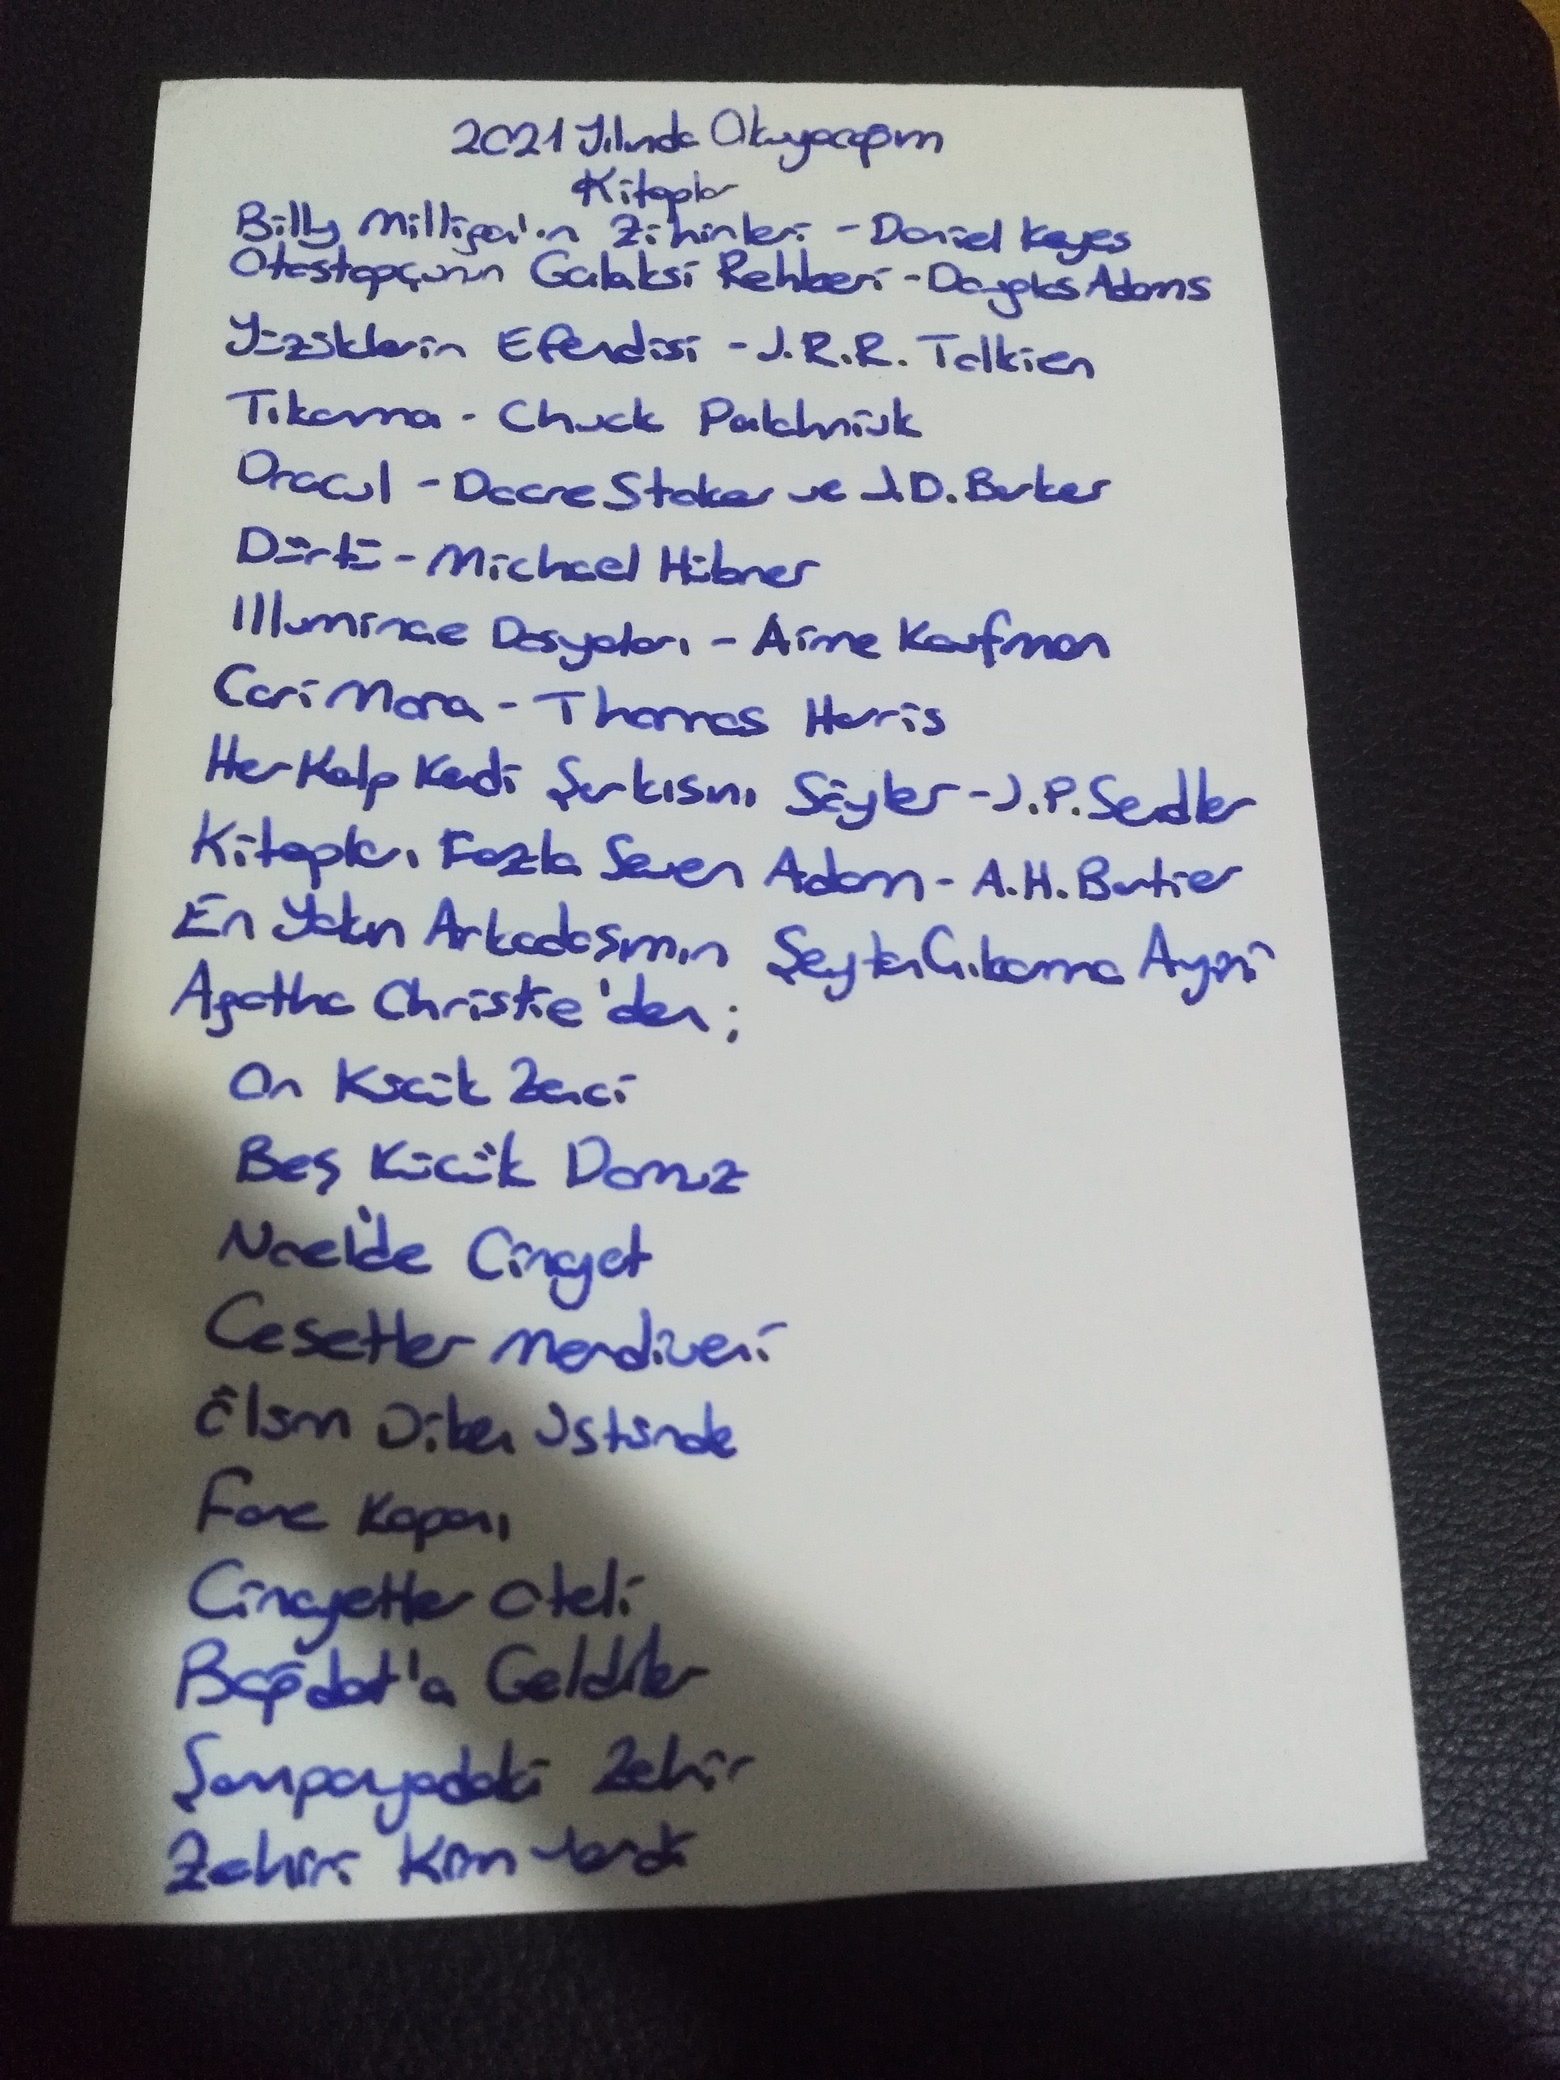 2021 Yılında Okuyacağım
Kitaplar
Billy Milligan'ın Zihinleri - Daniel Keyes
Otostopçunun Galaksi Rehberi - Dougles Adams
Yüzüklerin Efendisi - J.R.R. Tolkien
Tıkanma - Chuck Palahniuk
Dracul - Dacre Stoker ve J.D. Barker
Dürtü - Michael Hübner
Illuminae Dosyaları - Amie Kaufman
Cari Mora - Thomas Harris
Her Kalp Kendi Şarkısını Söyler - J.P. Sendker
Kitapları Fazla Seven Adam - A.H. Bartlett
En Yakın Arkadaşımın Şeytan Çıkarma Ayini
Agatha Christie'den;
On Küçük Zenci
Beş Küçük Domuz
Noel'de Cinayet
Cesetler Merdiveni
Ölüm Diken Üstünde
Fare Kapanı
Cinayetler Oteli
Bağdat'a Geldiler
Şampanyadaki Zehir
Zehiri Kim